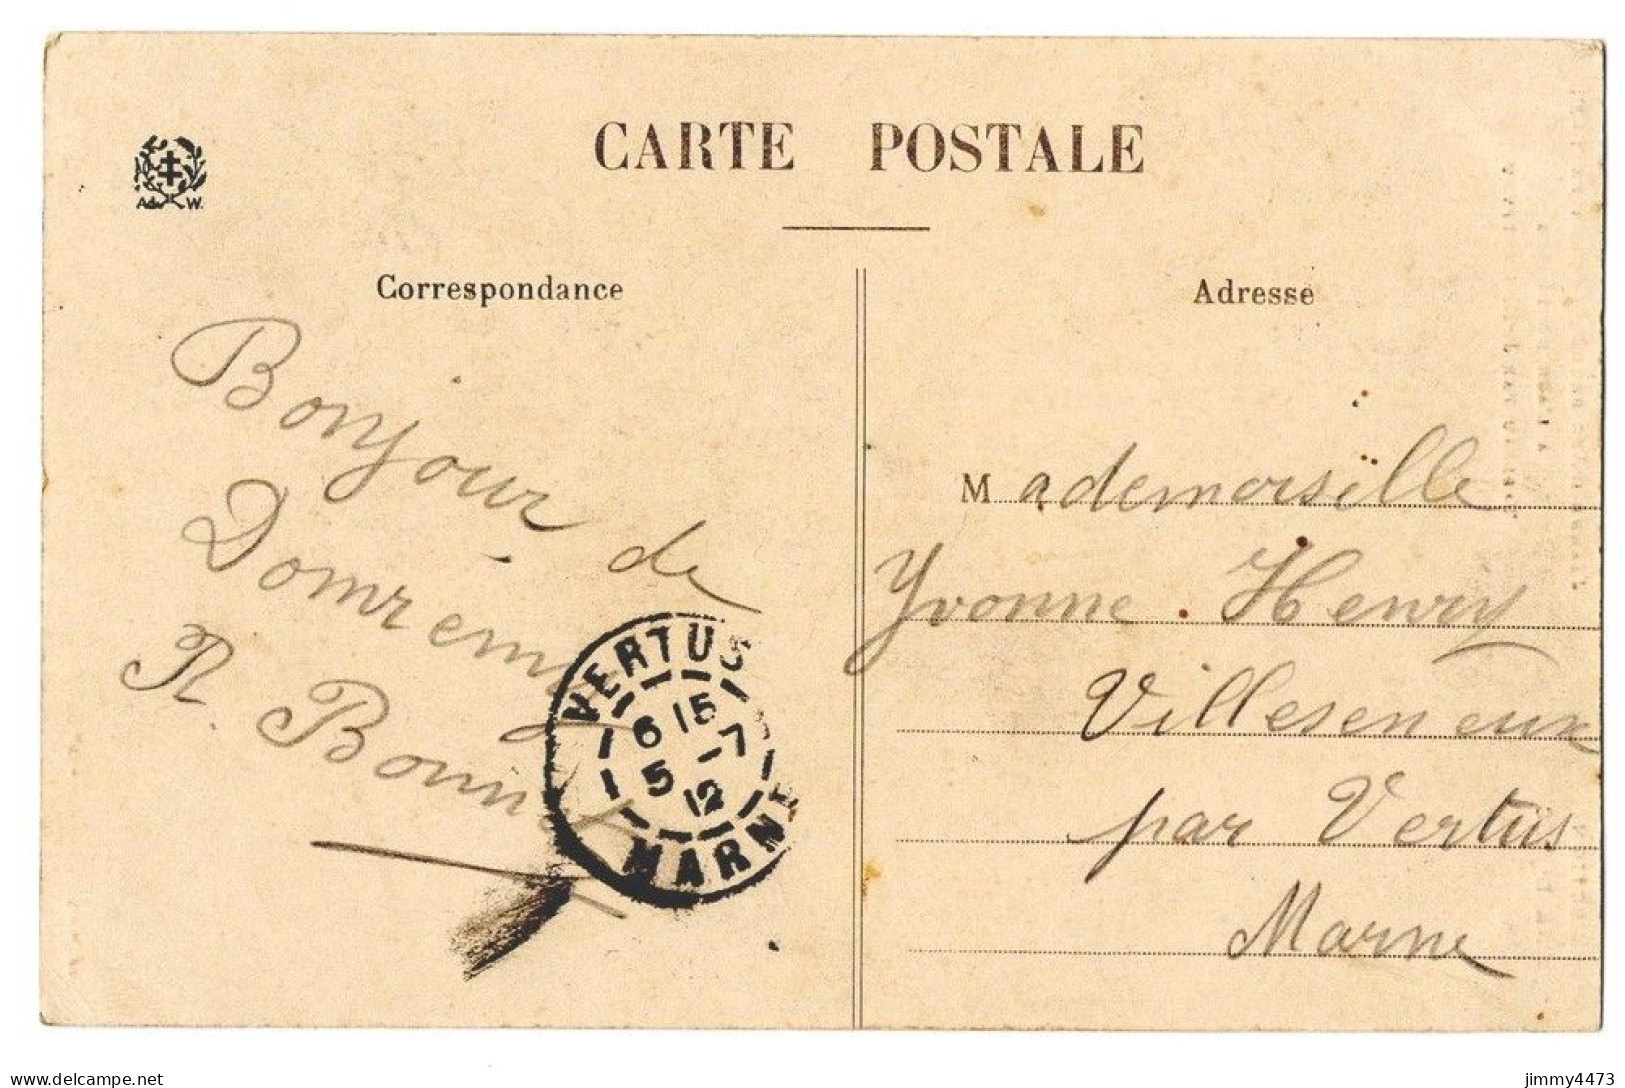 CARTE POSTALE
Ad. W.
Correspondance
Bonjour de
Domremy
R. Bonnet
VERTUS
6 15
5 -7
12
MARNE
Adresse
Mademoiselle
Yvonne Henry
Villeseneux
par Vertus
Marne
delcampe.net
jimmy4473